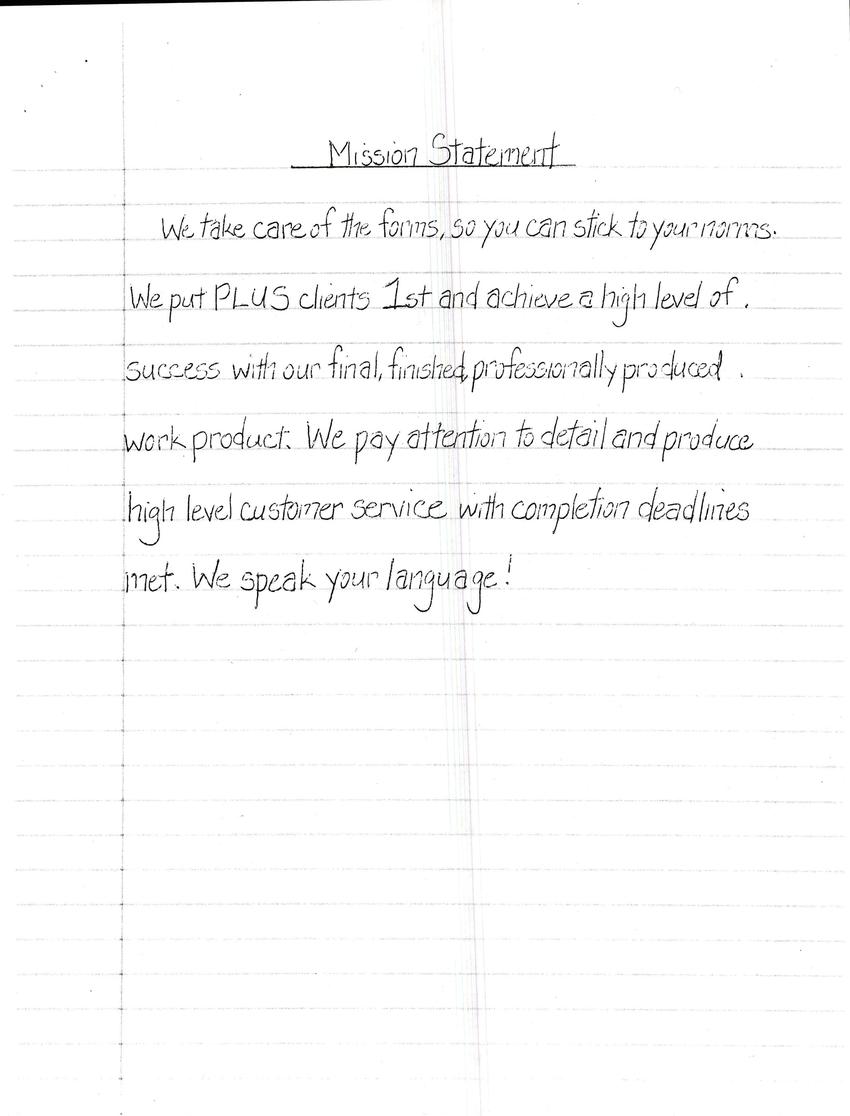 Mission Statement
We take care of the forms, so you can stick to your norms.
We put PLUS clients 1st and achieve a high level of .
success with our final, finished, professionally produced .
work product. We pay attention to detail and produce
high level customer service with completion deadlines
met. We speak your language!